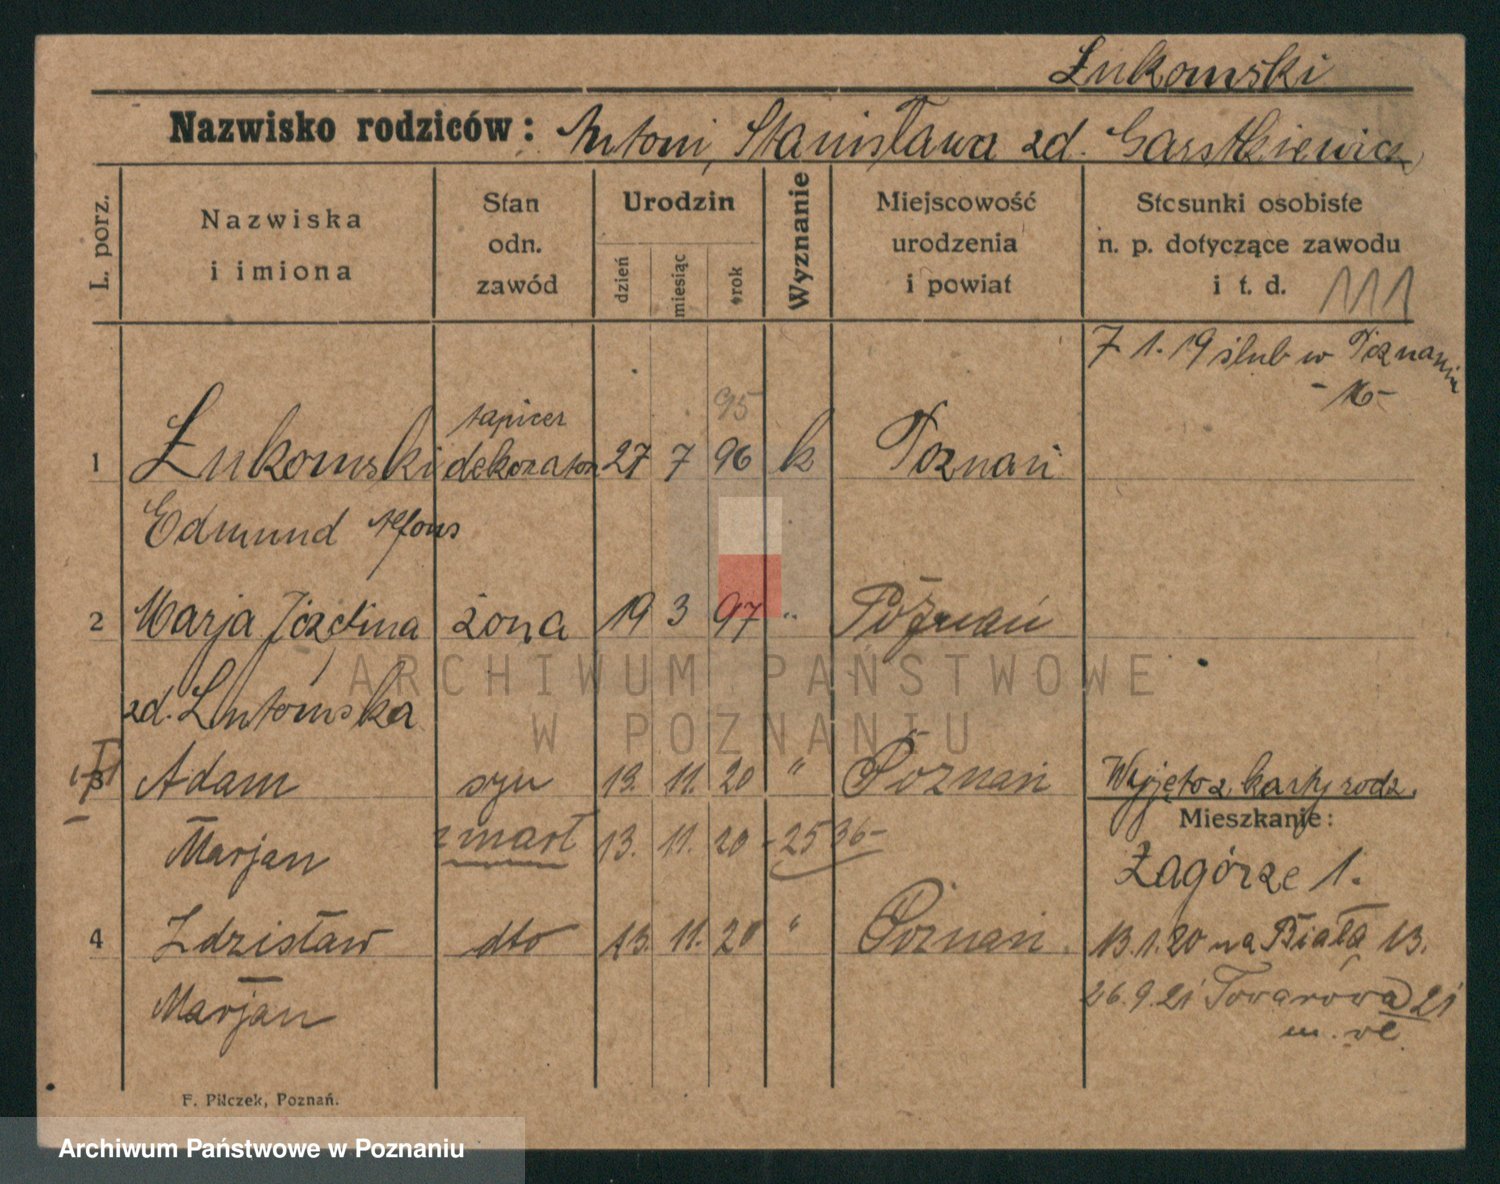 Łukomski
Nazwisko rodziców: Antoni, Stanisława zd. Garstkiewicz
L. porz.
Nazwiska
i imiona
Stan
odn.
zawód
Urodzin
dzień
miesiąc
rok
Wyznanie
Miejscowość
urodzenia
i powiat
Stosunki osobiste
n. p. dotyczące zawodu
i t. d.
111
7.1.19 ślub w Poznaniu
95
tapicer
1 Łukomski dekorator 27 7 96 k Poznań
Edmund Alfons
2 Marja Józefina żona 19 3 97 " Poznań
zd. Lutomska
3 Adam syn 13. 11. 20 " Poznań Wyjęto z karty rodz.
Mieszkanie:
Marjan zmarł 13. 11. 20 -2536-
Zagórze 1.
4 Zdzisław dto 13. 11. 20 " Poznań. 13.1.20 na Białą 13.
Marjan
26.9.21 Towarowa 21
F. Pilczek, Poznań.
ARCHIWUM PAŃSTWOWE
W POZNANIU
Archiwum Państwowe w Poznaniu